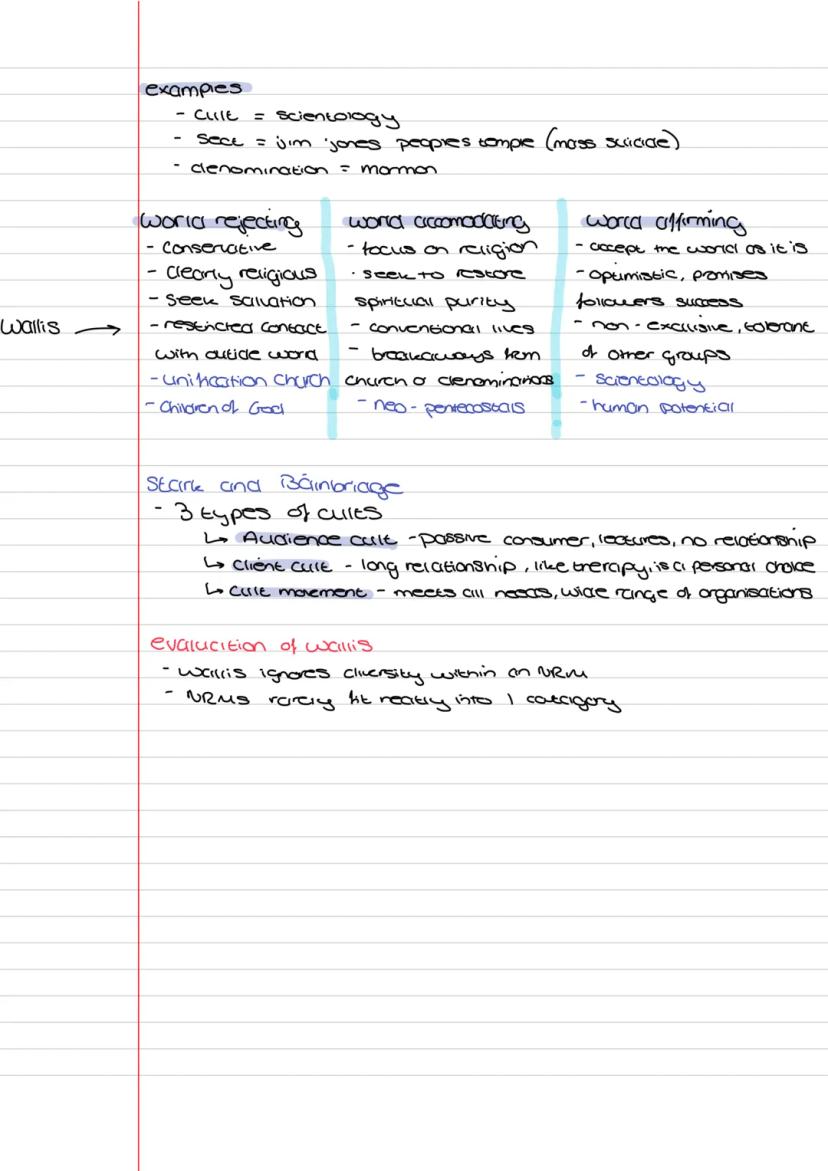 examples
- cult = scientology
- sect = jim jones peoples temple (mass suicide)
- denomination = mormon
Wallis →
world rejecting
- conservative
- clearly religious
- seek salvation
- restricted contact
with outide word
- unification church
- Children of God
world accomodating
- focus on religion
- seek to restore
spiritual purity
- conventional lives
- breakaways from
church or denominations
- neo - pentecostals
world affirming
- accept the world as it is
- optimistic, promises
followers success
- non - exclusive, tolerant
of other groups
- scientology
- human potential
Stark and Bainbridge
- 3 types of cults
↳ Audience cult - passive consumer, lectures, no relationship
↳ client cult - long relationship, like therapy, is a personal choice
↳ cult movement - meets all needs, wide range of organisations
evaluation of wallis
- wallis ignores diversity within an NRM
- NRMs rarely fit neatly into 1 catergory